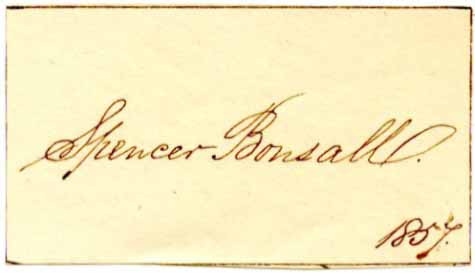 Spencer Bonsall.
1857.